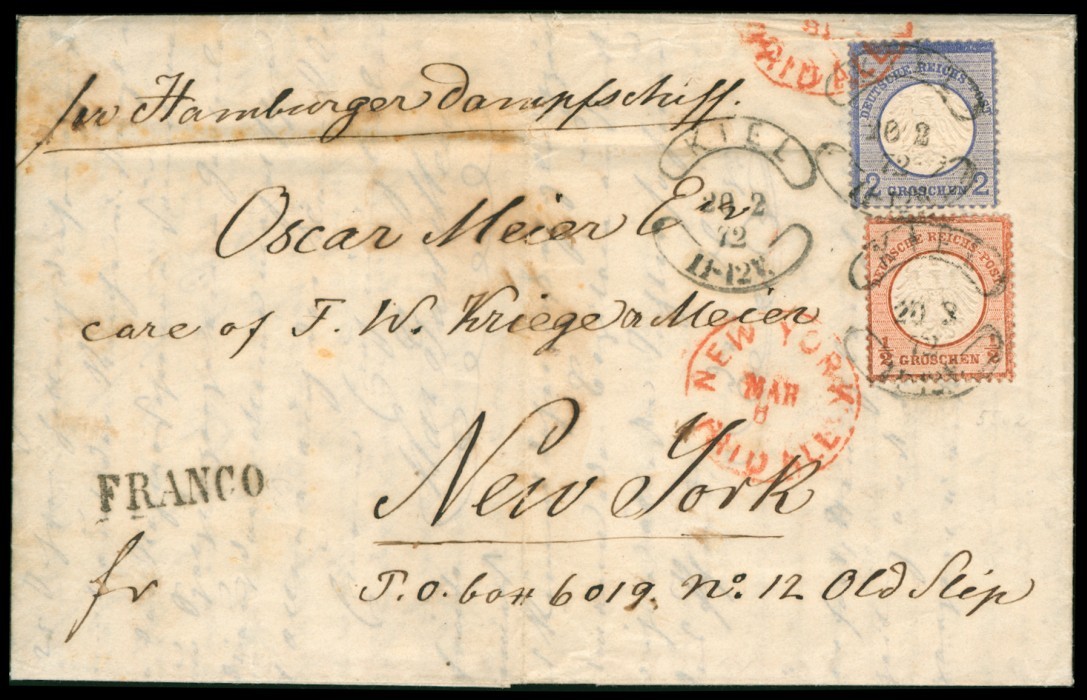 pr Hamburger Dampfschiff.
DEUTSCHE REICHS-POST
20 2
72
11-12V.
2 GROSCHEN 2
KIEL
20 2
72
11-12V.
Oscar Meier Esr
KIEL
DEUTSCHE REICHS-POST
20 2
72
½ GROSCHEN ½
care of F. W. Kriege & Meier
NEW YORK
MAR
8
PAID ALL
New York
FRANCO
fr
P.O. box 6019. No. 12 Old Slip